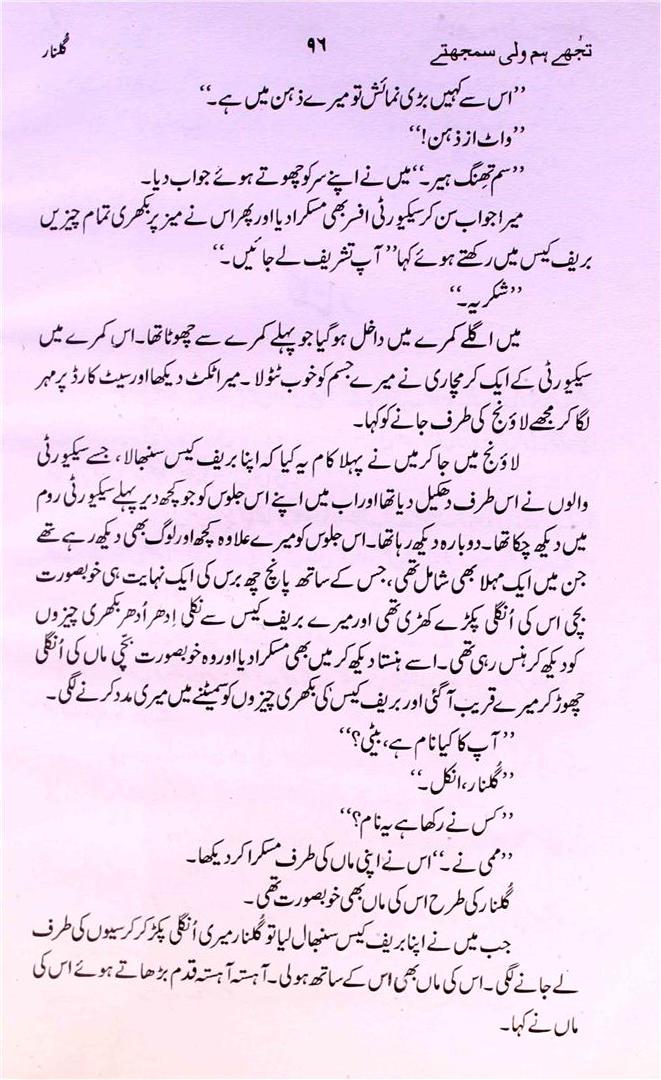 تجھے ہم ولی سمجھتے ۹۶ گلنار
’’اس سے کہیں بڑی نمائش تو میرے ذہن میں ہے۔‘‘
’’واٹ از ذہن!‘‘
’’سم تھنگ ہیر۔‘‘ میں نے اپنے سر کو چھوتے ہوئے جواب دیا۔
میرا جواب سن کر سیکیورٹی افسر بھی مسکرا دیا اور پھر اس نے میز پر بکھری تمام چیزیں
بریف کیس میں رکھتے ہوئے کہا ’’آپ تشریف لے جائیں۔‘‘
’’شکریہ۔‘‘
میں اگلے کمرے میں داخل ہوگیا جو پہلے کمرے سے چھوٹا تھا۔ اس کمرے میں
سیکیورٹی کے ایک کرمچاری نے میرے جسم کو خوب ٹٹولا۔ میرا ٹکٹ دیکھا اور سیٹ کارڈ پر مہر
لگا کر مجھے لاؤنج کی طرف جانے کو کہا۔
لاؤنج میں جا کر میں نے پہلا کام یہ کیا کہ اپنا بریف کیس سنبھالا، جسے سیکیورٹی
والوں نے اس طرف دھکیل دیا تھا اور اب میں اپنے اس جلوس کو جو کچھ دیر پہلے سیکیورٹی روم
میں دیکھ چکا تھا۔ دوبارہ دیکھ رہا تھا۔ اس جلوس کو میرے علاوہ کچھ اور لوگ بھی دیکھ رہے تھے
جن میں ایک مہلا بھی شامل تھی، جس کے ساتھ پانچ چھ برس کی ایک نہایت ہی خوبصورت
بچی اس کی اُنگلی پکڑے کھڑی تھی اور میرے بریف کیس سے نکلی اِدھر اُدھر بکھری چیزوں
کو دیکھ کر ہنس رہی تھی۔ اسے ہنستا دیکھ کر میں بھی مسکرا دیا اور وہ خوبصورت بچّی ماں کی اُنگلی
چھوڑ کر میرے قریب آ گئی اور بریف کیس کی بکھری چیزوں کو سمیٹنے میں میری مدد کرنے لگی۔
’’آپ کا کیا نام ہے، بیٹی؟‘‘
’’گلنار، انکل۔‘‘
’’کس نے رکھا ہے یہ نام؟‘‘
’’ممی نے۔‘‘ اس نے اپنی ماں کی طرف مسکرا کر دیکھا۔
گلنار کی طرح اس کی ماں بھی خوبصورت تھی۔
جب میں نے اپنا بریف کیس سنبھال لیا تو گلنار میری اُنگلی پکڑ کر کرسیوں کی طرف
لے جانے لگی۔ اس کی ماں بھی اس کے ساتھ ہولی۔ آہستہ آہستہ قدم بڑھاتے ہوئے اس کی
ماں نے کہا۔